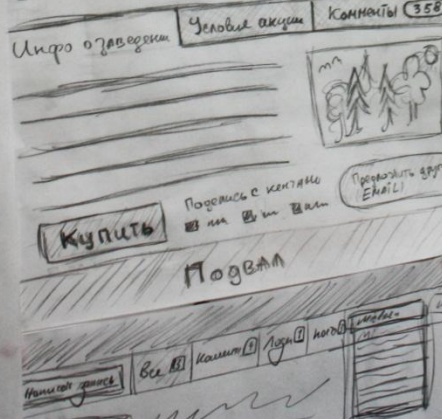 Инфо о заведении
Условия акции
Комменты 358
Поделись с кентами
Предложить друг
(EMAIL)
Купить
Подвал
Написать запись
Все
Люди